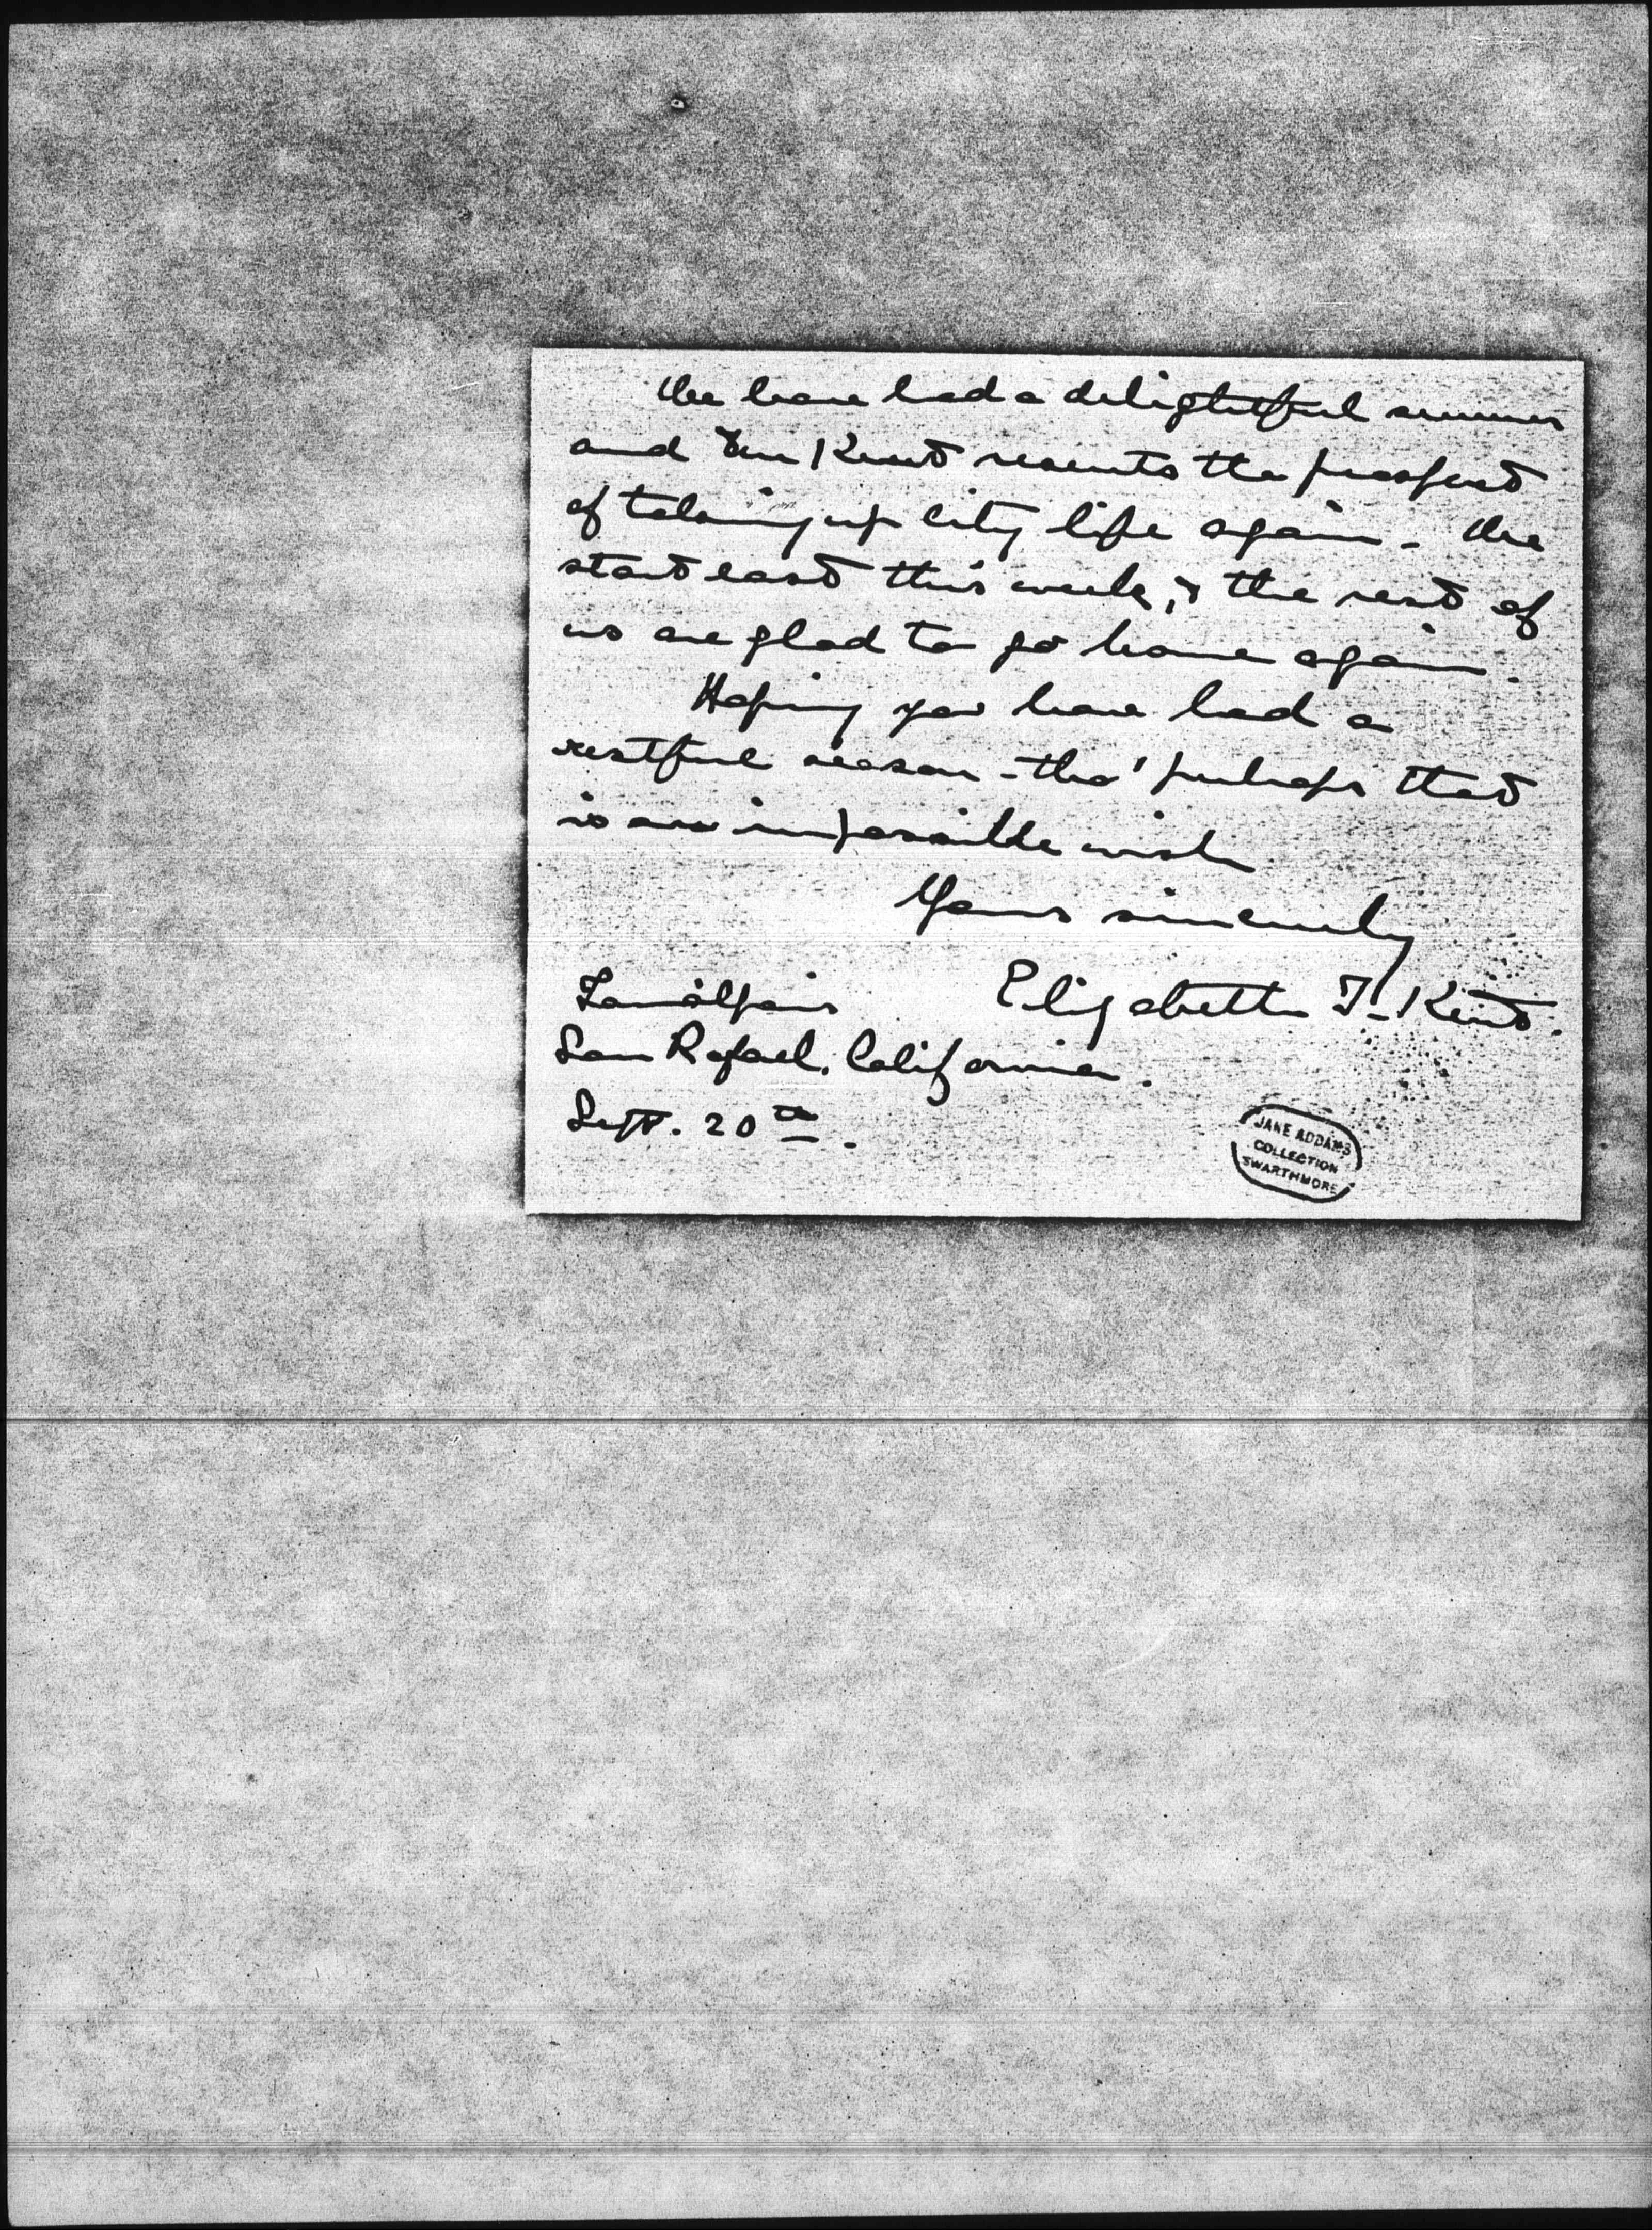 We have had a delightful summer
and Mr Kent resents the prospect
of taking up city life again - We
start east this week, & the rest of
us are glad to go home again.
Hoping you have had a
restful season - tho' perhaps that
is an impossible wish
Yours sincerely
Elizabeth T. Kent.
Tamalpais
San Rafael. California.
Sept. 20th.
JANE ADDAMS
COLLECTION
SWARTHMORE